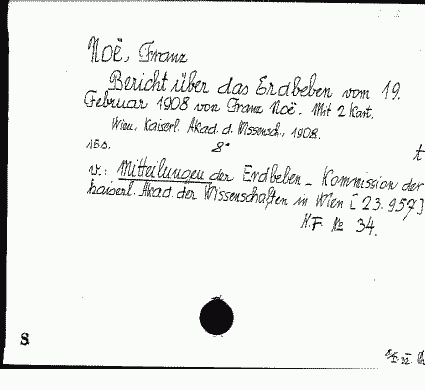 Noë, Franz
Bericht über das Erdbeben vom 19.
Februar 1908 von Franz Noë. Mit 2 Kart.
Wien, Kaiserl. Akad. d. Wissensch., 1908.
15 S. 8° t
v.: Mitteilungen der Erdbeben - Kommission der
kaiserl. Akad. der Wissenschaften in Wien [23.957]
N.F. № 34.
S